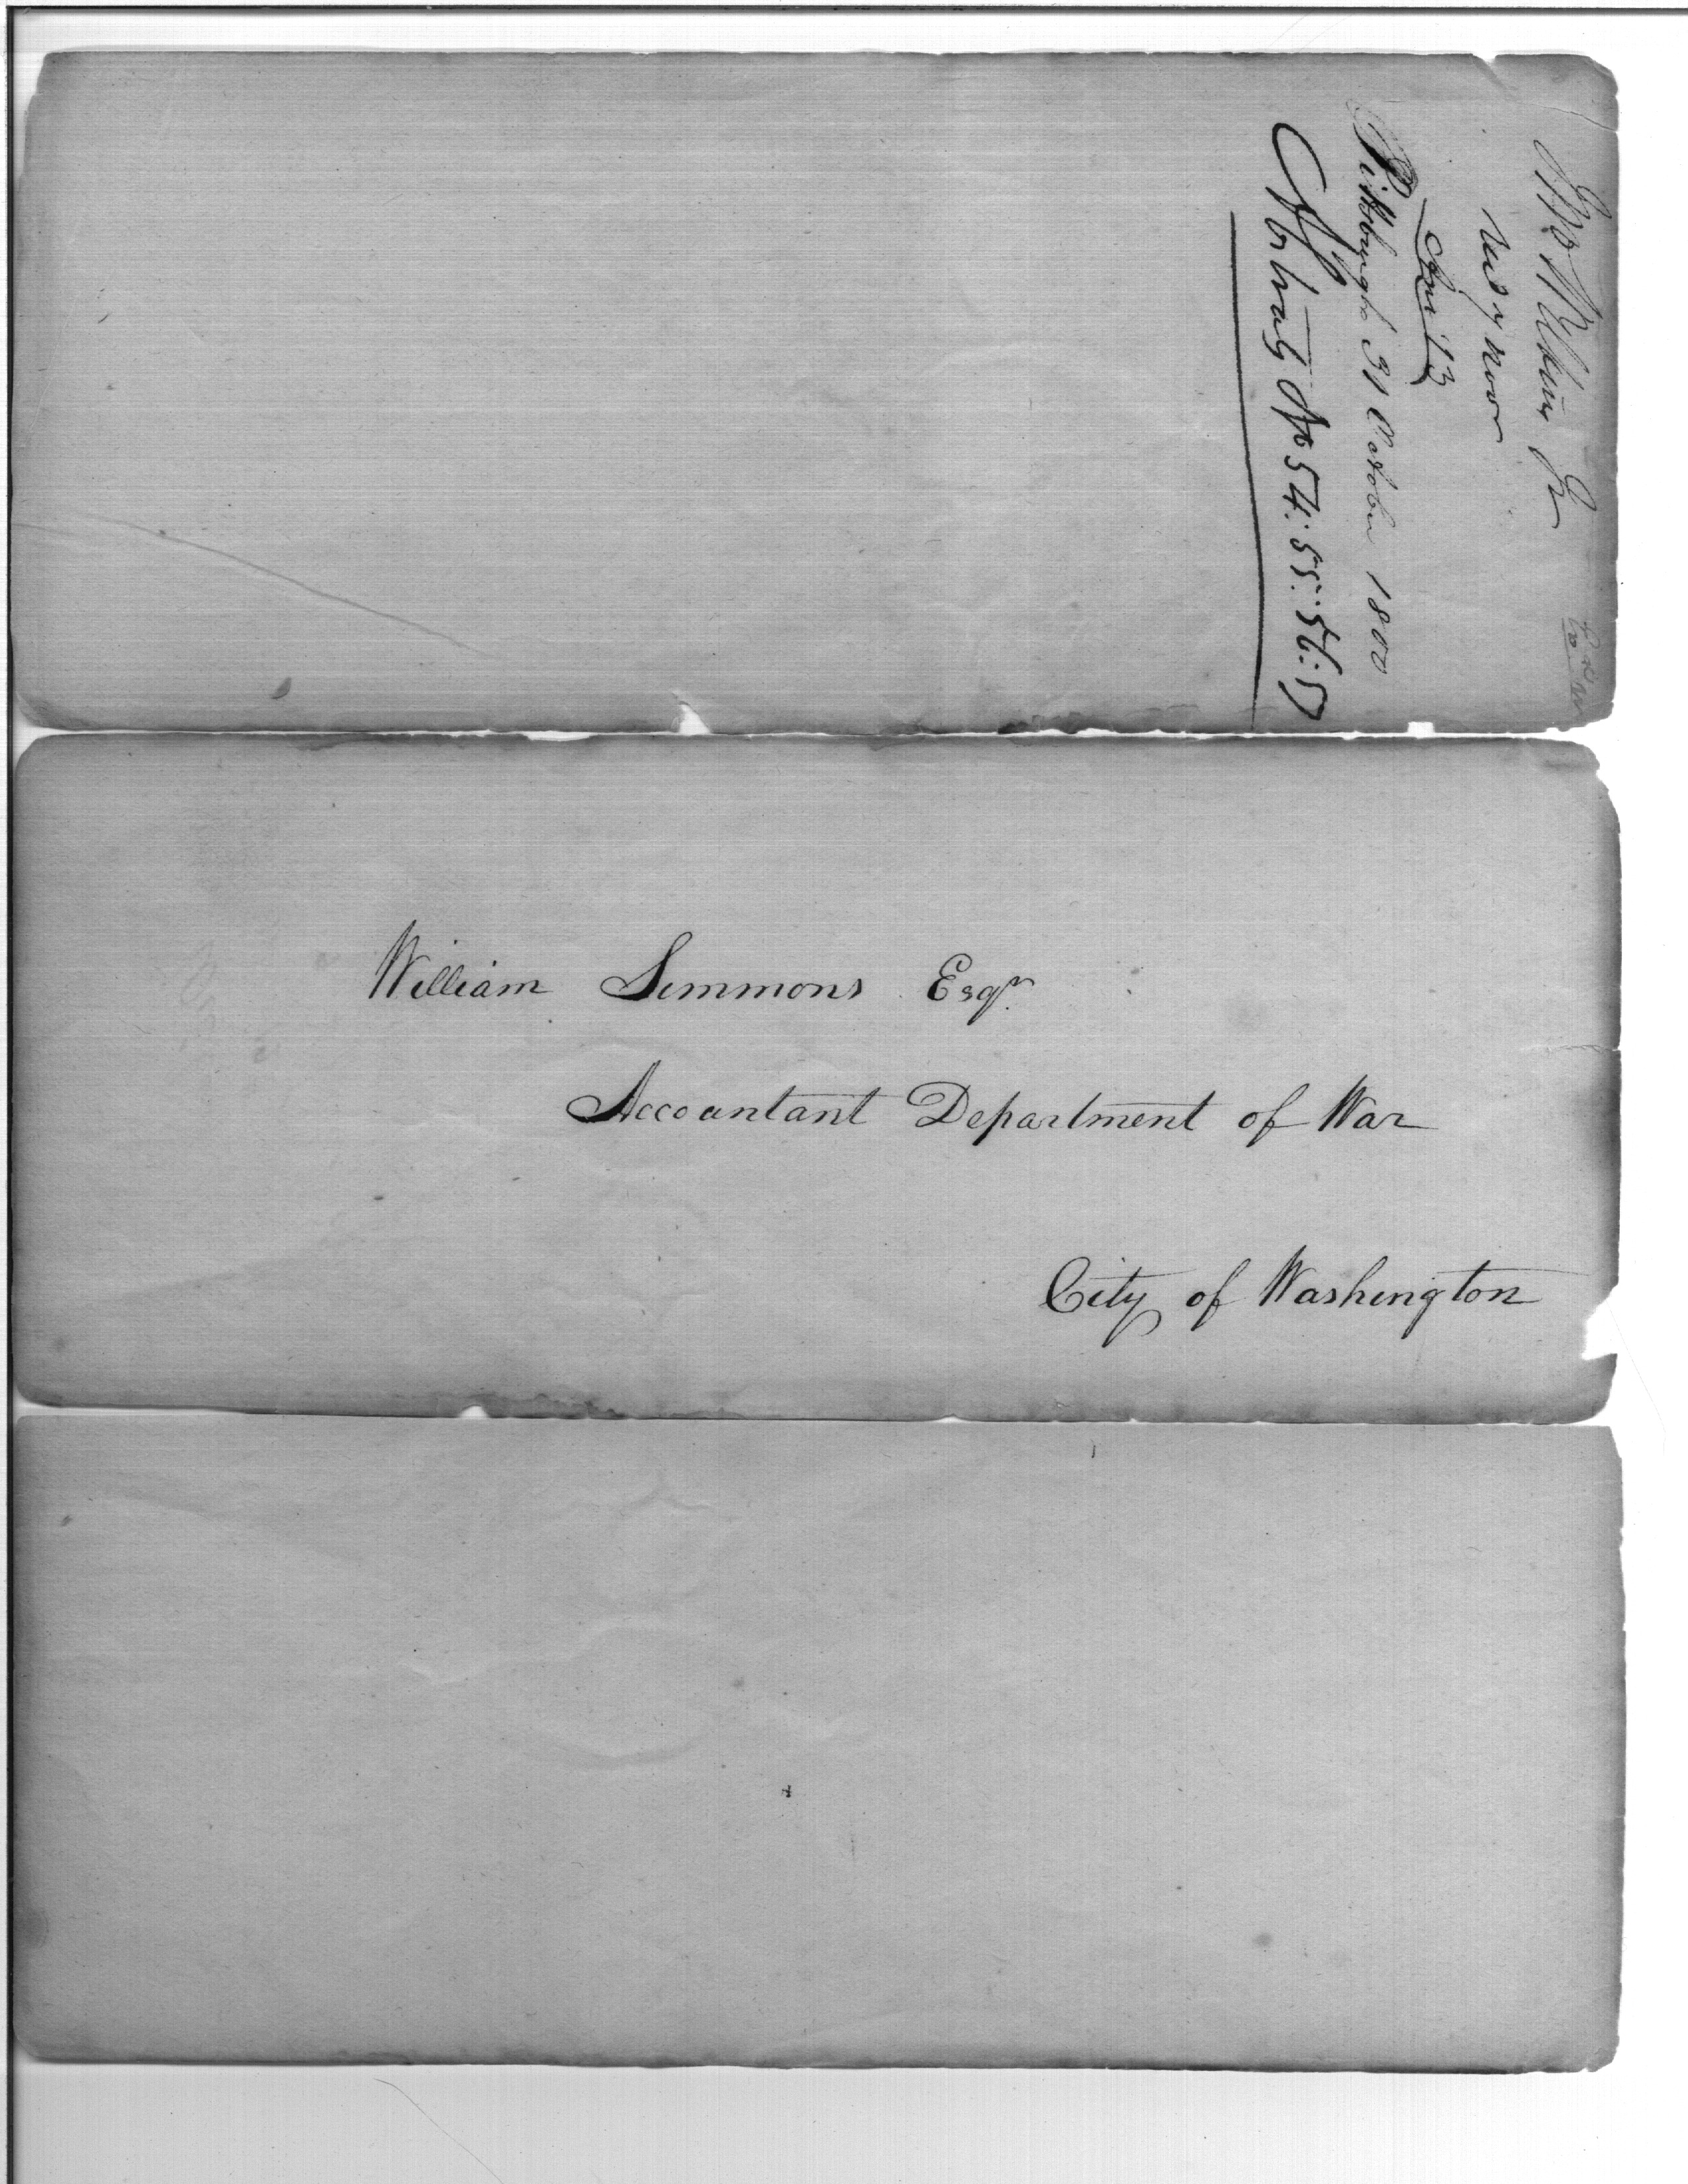 Jno Wilkins Jr
Recd 9 Nov
Ans 13
Pittsburgh 31 October 1800
Abstracts No 54: 55: 56: 57
William Simmons Esqr.
Accountant Department of War
City of Washington